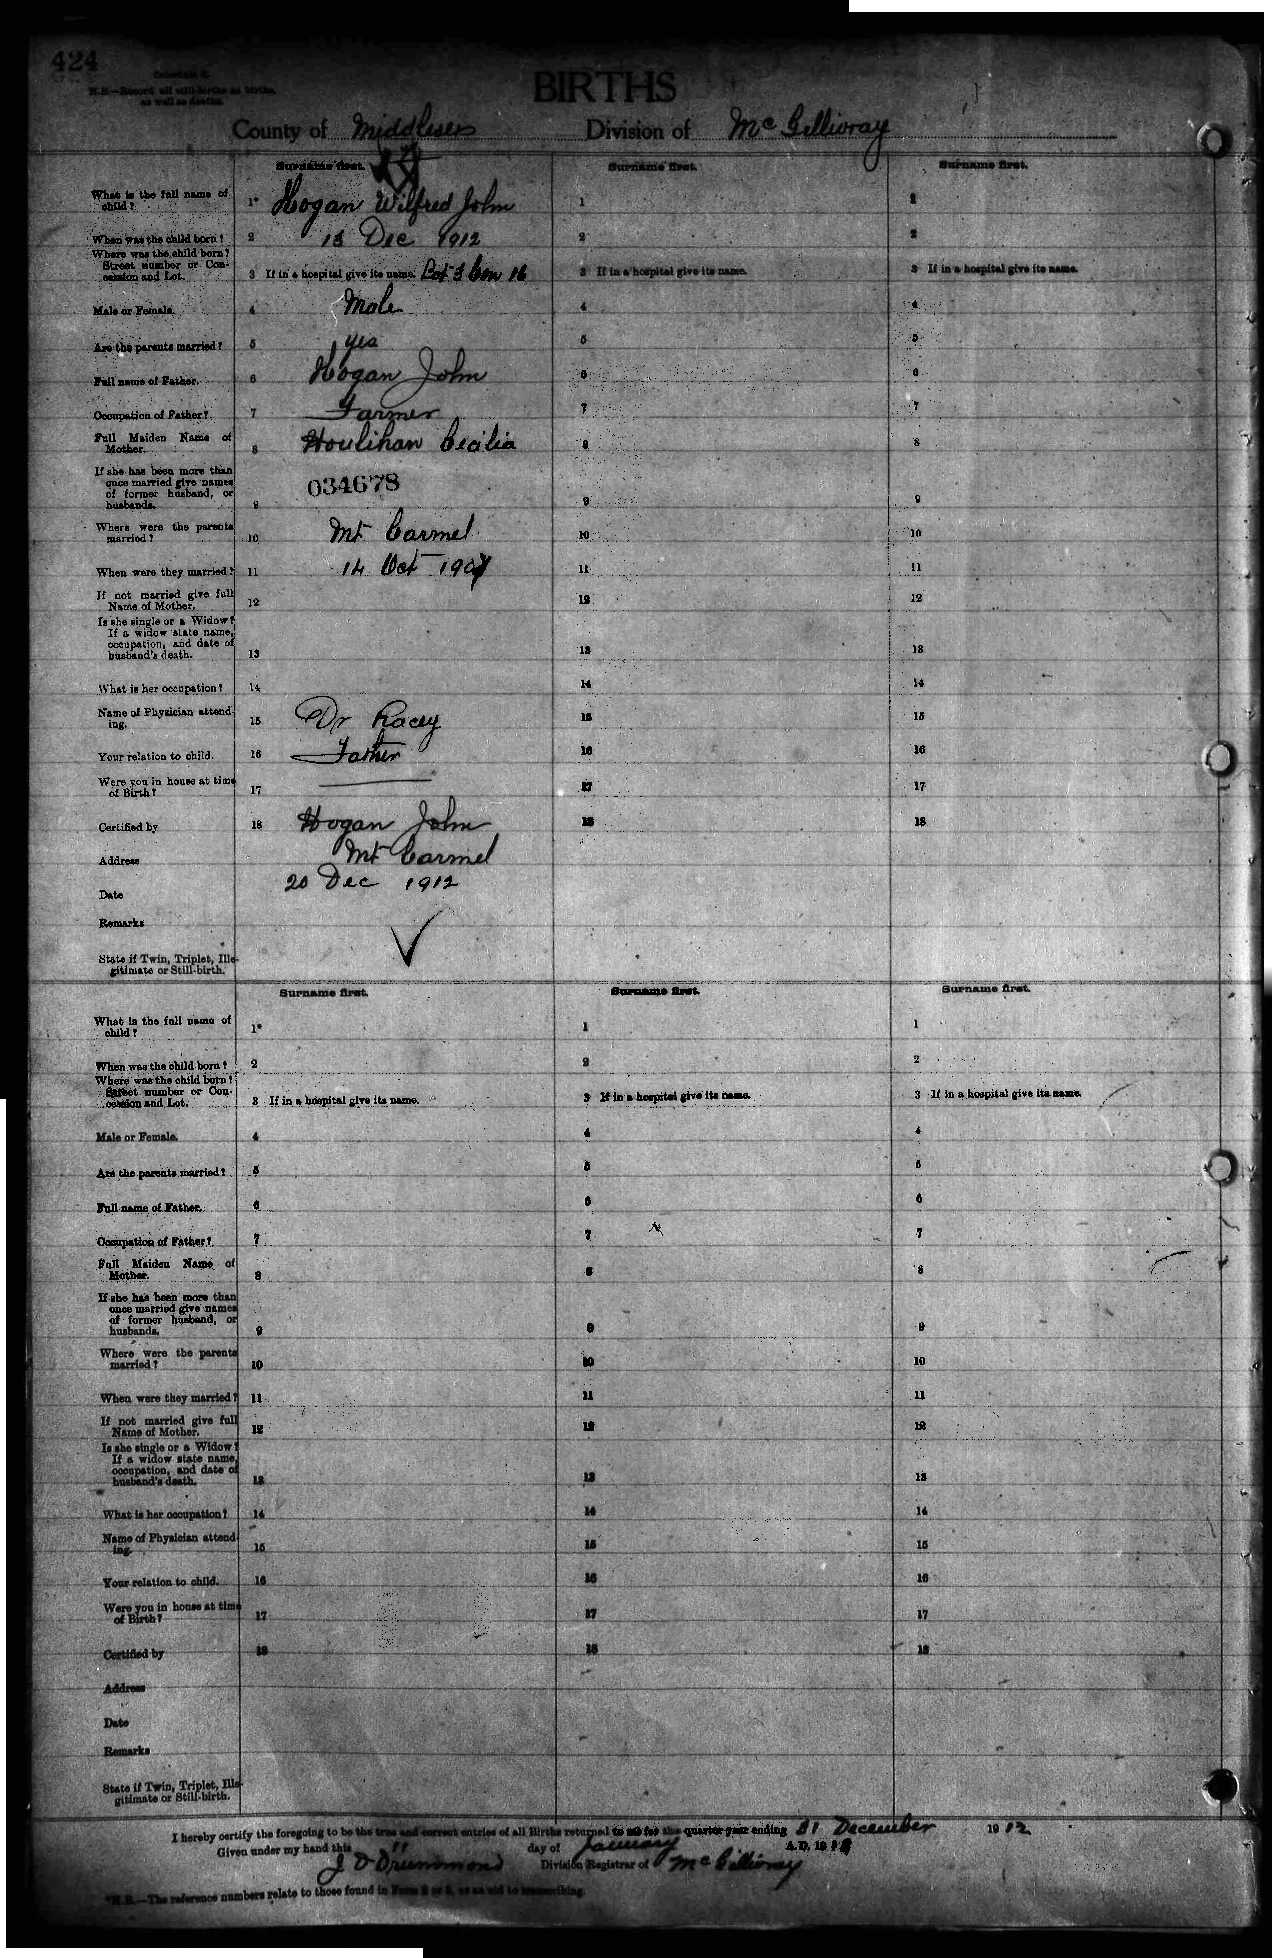 424
Schedule C.
N.B.—Record all still-births as births,
as well as deaths.
BIRTHS
County of Middlesex Division of McGillivray
Surname first. Surname first. Surname first.
What is the full name of
child? 1* Hogan Wilfred John 1 1
When was the child born? 2 13 Dec 1912 2 2
Where was the child born?
Street number or Con-
cession and Lot. 3 If in a hospital give its name. Lot 3 Con 16 3 If in a hospital give its name. 3 If in a hospital give its name.
Male or Female. 4 Male 4 4
Are the parents married? 5 yes 5 5
Full name of Father. 6 Hogan John 6 6
Occupation of Father? 7 Farmer 7 7
Full Maiden Name of
Mother. 8 Houlihan Cecilia 8 8
If she has been more than
once married give names
of former husband, or
husbands. 9 034678 9 9
Where were the parents
married? 10 Mt Carmel 10 10
When were they married? 11 14 Oct 11 11
If not married give full
Name of Mother. 12 12 12
Is she single or a Widow?
If a widow state name,
occupation, and date of
husband's death. 13 13 13
What is her occupation? 14 14 14
Name of Physician attend-
ing. 15 Dr Racey 15 15
Your relation to child. 16 Father 16 16
Were you in house at time
of Birth? 17 17 17
Certified by 18 Hogan John 18 18
Address Mt Carmel
Date 20 Dec 1912
Remarks
State if Twin, Triplet, Ille-
gitimate or Still-birth.
Surname first. Surname first. Surname first.
What is the full name of
child? 1* 1 1
When was the child born? 2 2 2
Where was the child born?
Street number or Con-
cession and Lot. 3 If in a hospital give its name. 3 If in a hospital give its name. 3 If in a hospital give its name.
Male or Female. 4 4 4
Are the parents married? 5 5 5
Full name of Father. 6 6 6
Occupation of Father? 7 7 7
Full Maiden Name of
Mother. 8 8 8
If she has been more than
once married give names
of former husband, or
husbands. 9 9 9
Where were the parents
married? 10 10 10
When were they married? 11 11 11
If not married give full
Name of Mother. 12 12 12
Is she single or a Widow?
If a widow state name,
occupation, and date of
husband's death. 13 13 13
What is her occupation? 14 14 14
Name of Physician attend-
ing. 15 15 15
Your relation to child. 16 16 16
Were you in house at time
of Birth? 17 17 17
Certified by 18 18 18
Address
Date
Remarks
State if Twin, Triplet, Ille-
gitimate or Still-birth.
I hereby certify the foregoing to be the true and correct entries of all Births returned to me for the quarter year ending 31 December 1912
Given under my hand this 11 day of January A.D. 19
J D Drummond Division Registrar of McGillivray
*N.B.—The reference numbers relate to those found in Form 2 or 3, as an aid to transcribing.